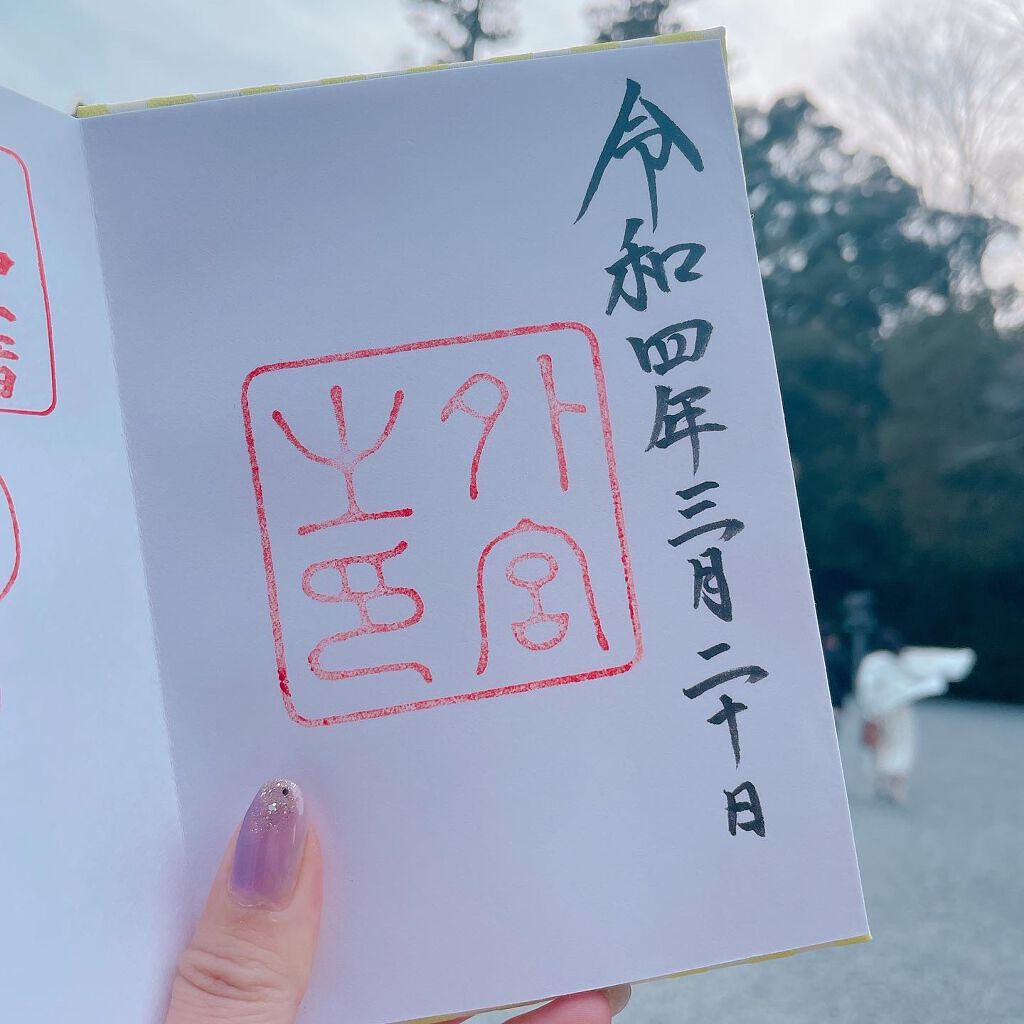 令和四年三月二十日
外宮
之印